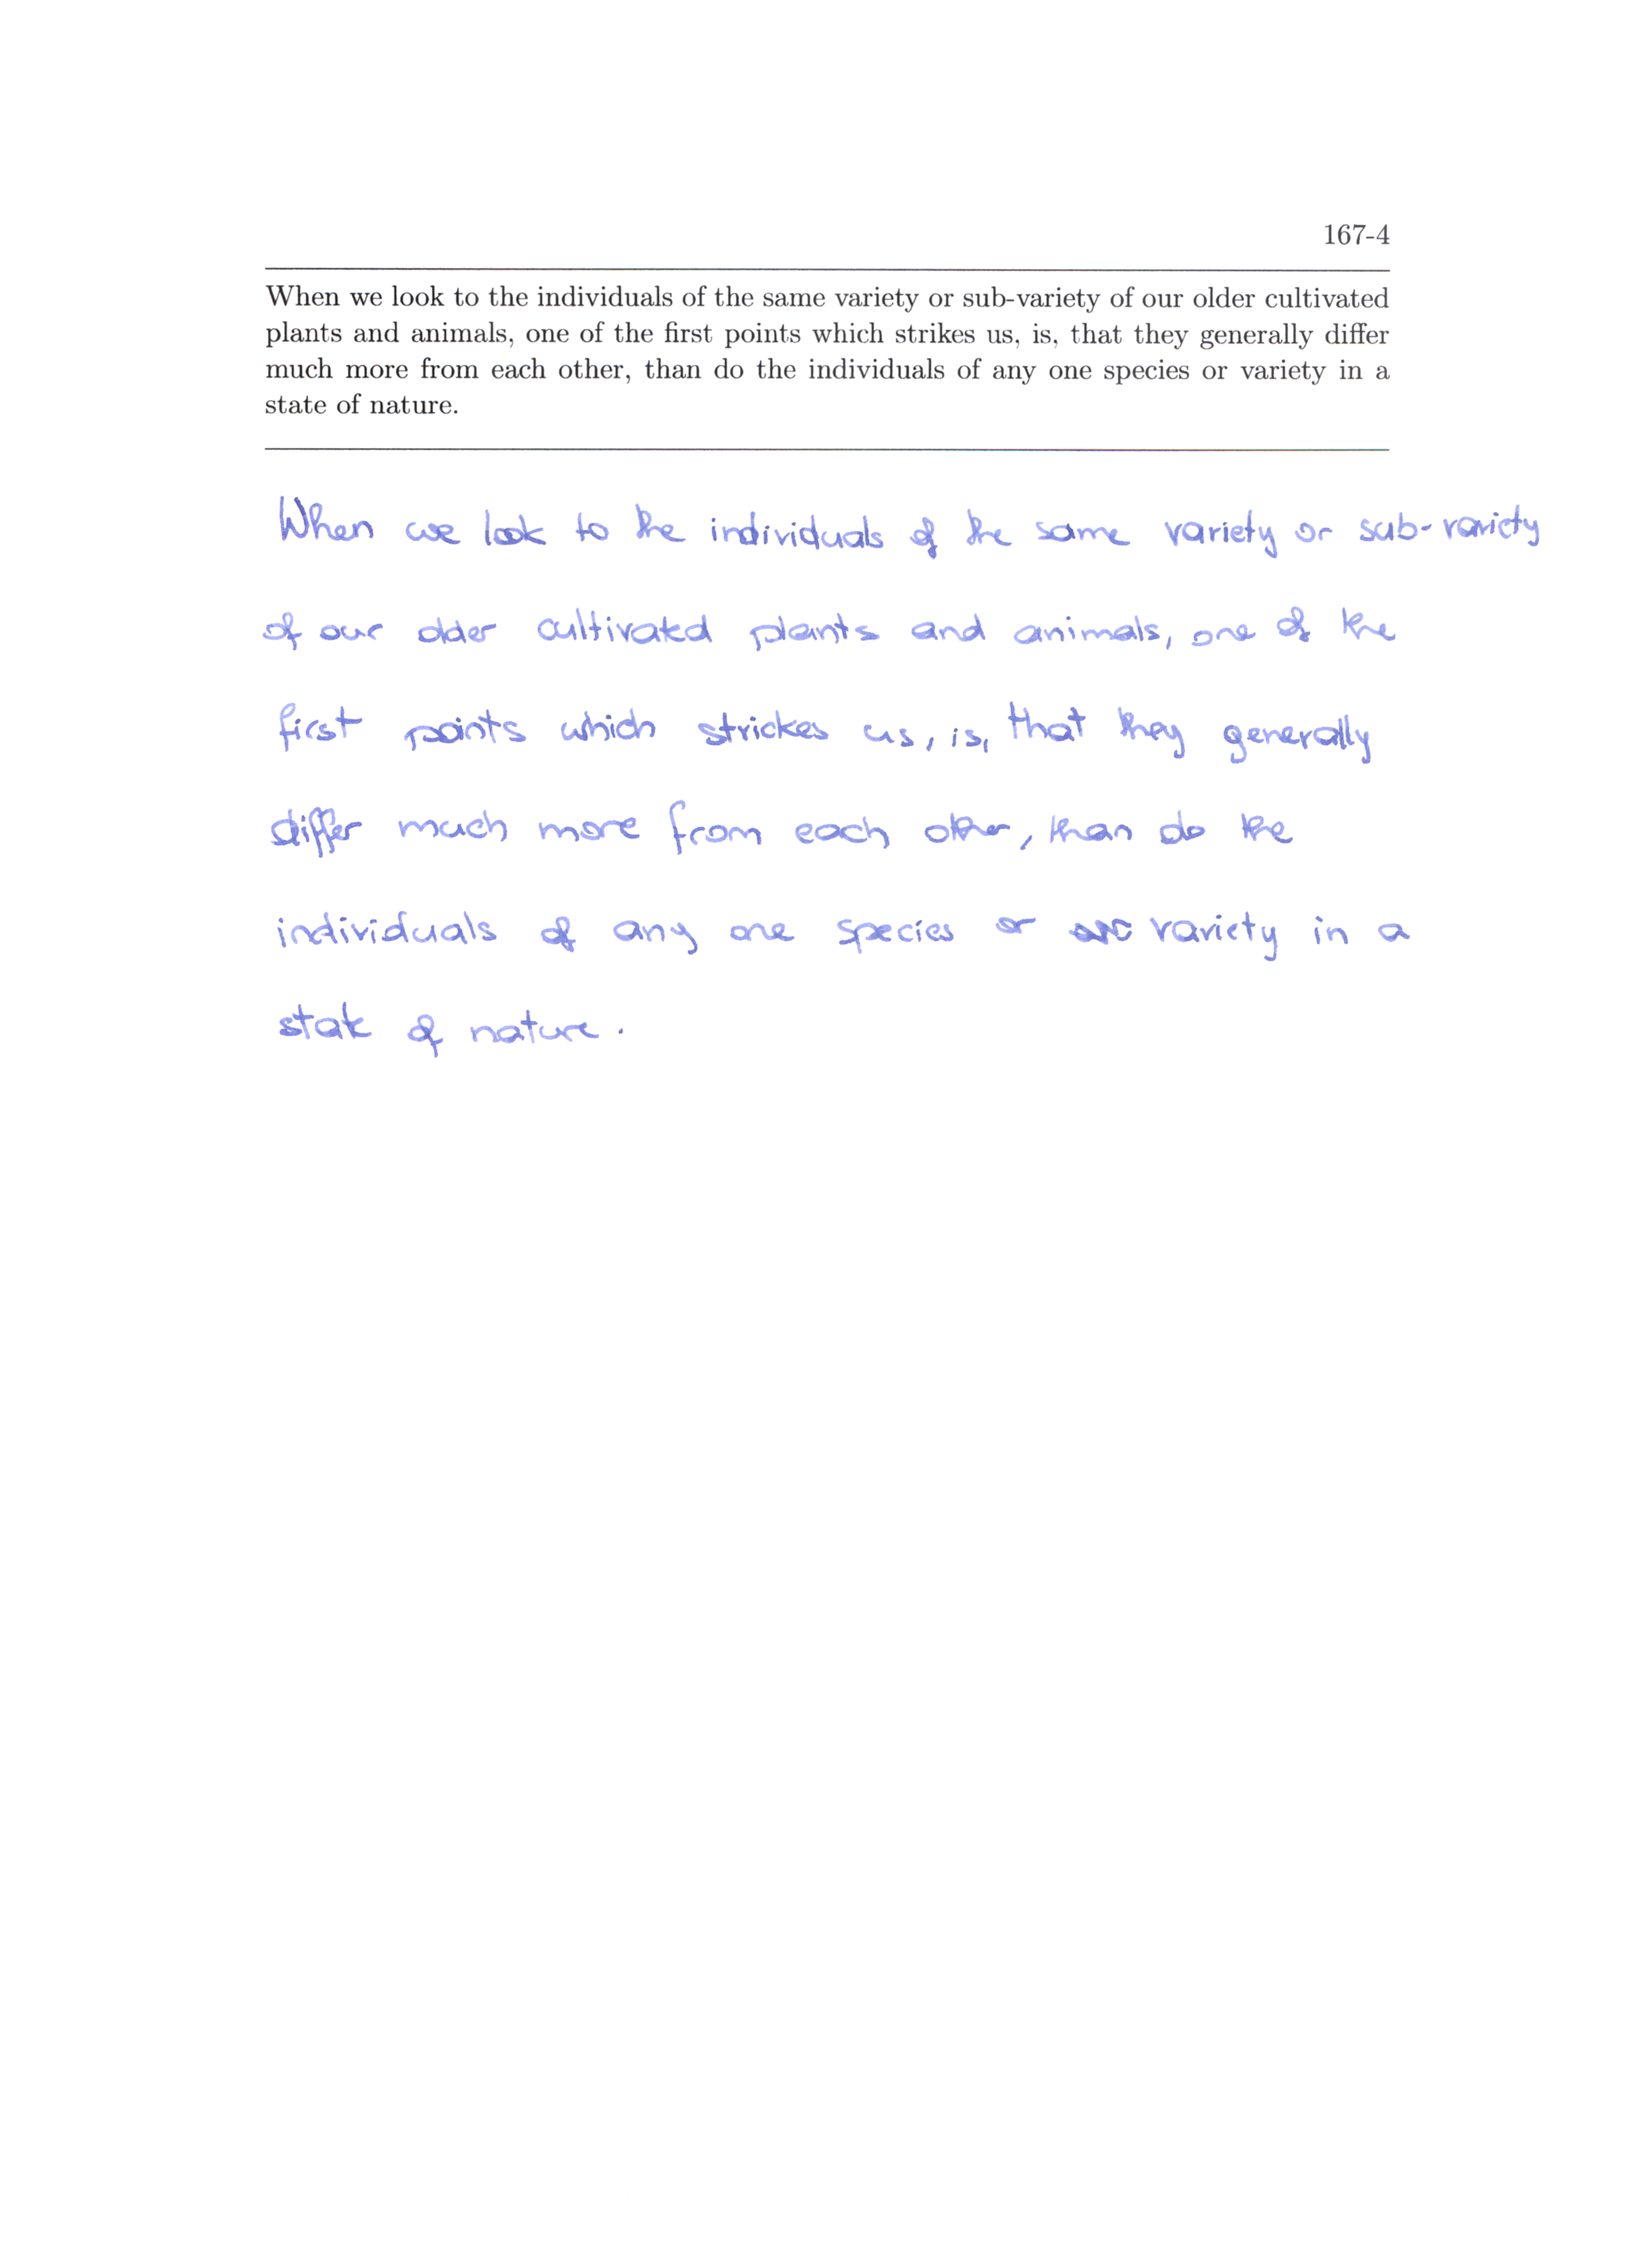 167-4
When we look to the individuals of the same variety or sub-variety of our older cultivated
plants and animals, one of the first points which strikes us, is, that they generally differ
much more from each other, than do the individuals of any one species or variety in a
state of nature.
When we look to the individuals of the same variety or sub-variety
of our older cultivated plants and animals, one of the
first points which strickes us, is, that they generally
differ much more from each other, than do the
individuals of any one species or variety in a
state of nature.